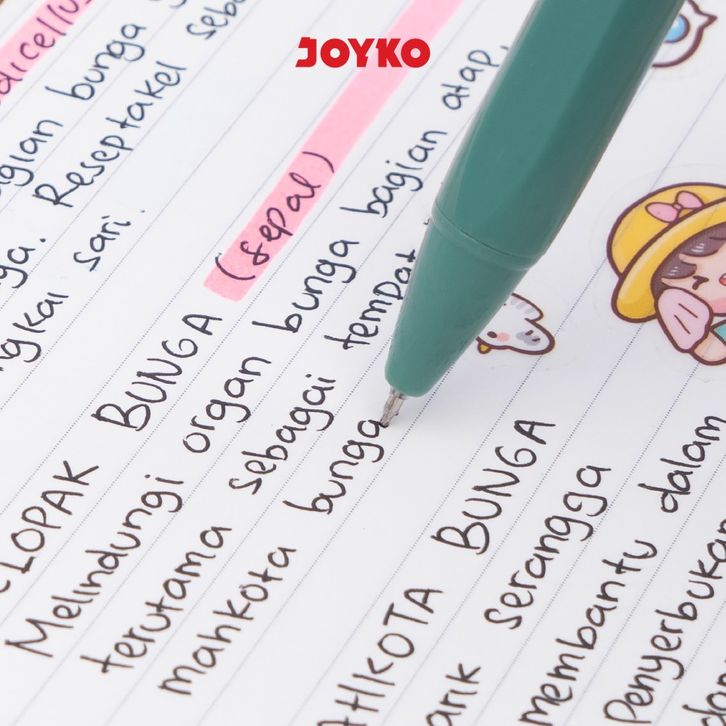 JOYKO
agian bunga
Reseptakel
sari.
LOPAK BUNGA (sepal)
Melindungi organ bunga bagian atap,
terutama sebagai tempat
mahkota bunga
AHKOTA BUNGA
arik serangga
membantu dalam
Penyerbukan